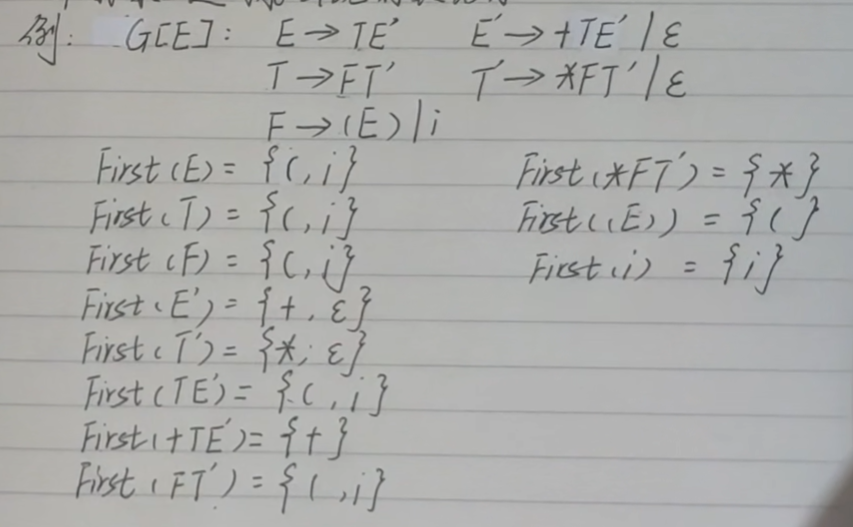 例: G[E]: E→TE′ E′→+TE′|ε
T→FT′ T′→*FT′|ε
F→(E)|i
First(E)={(,i} First(*FT′)={*}
First(T)={(,i} First((E))={(}
First(F)={(,i} First(i)={i}
First(E′)={+,ε}
First(T′)={*,ε}
First(TE′)={(,i}
First(+TE′)={+}
First(FT′)={(,i}